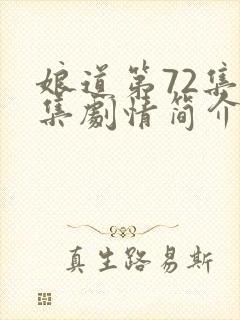 娘道第72集
集劇情简介
真生路易斯